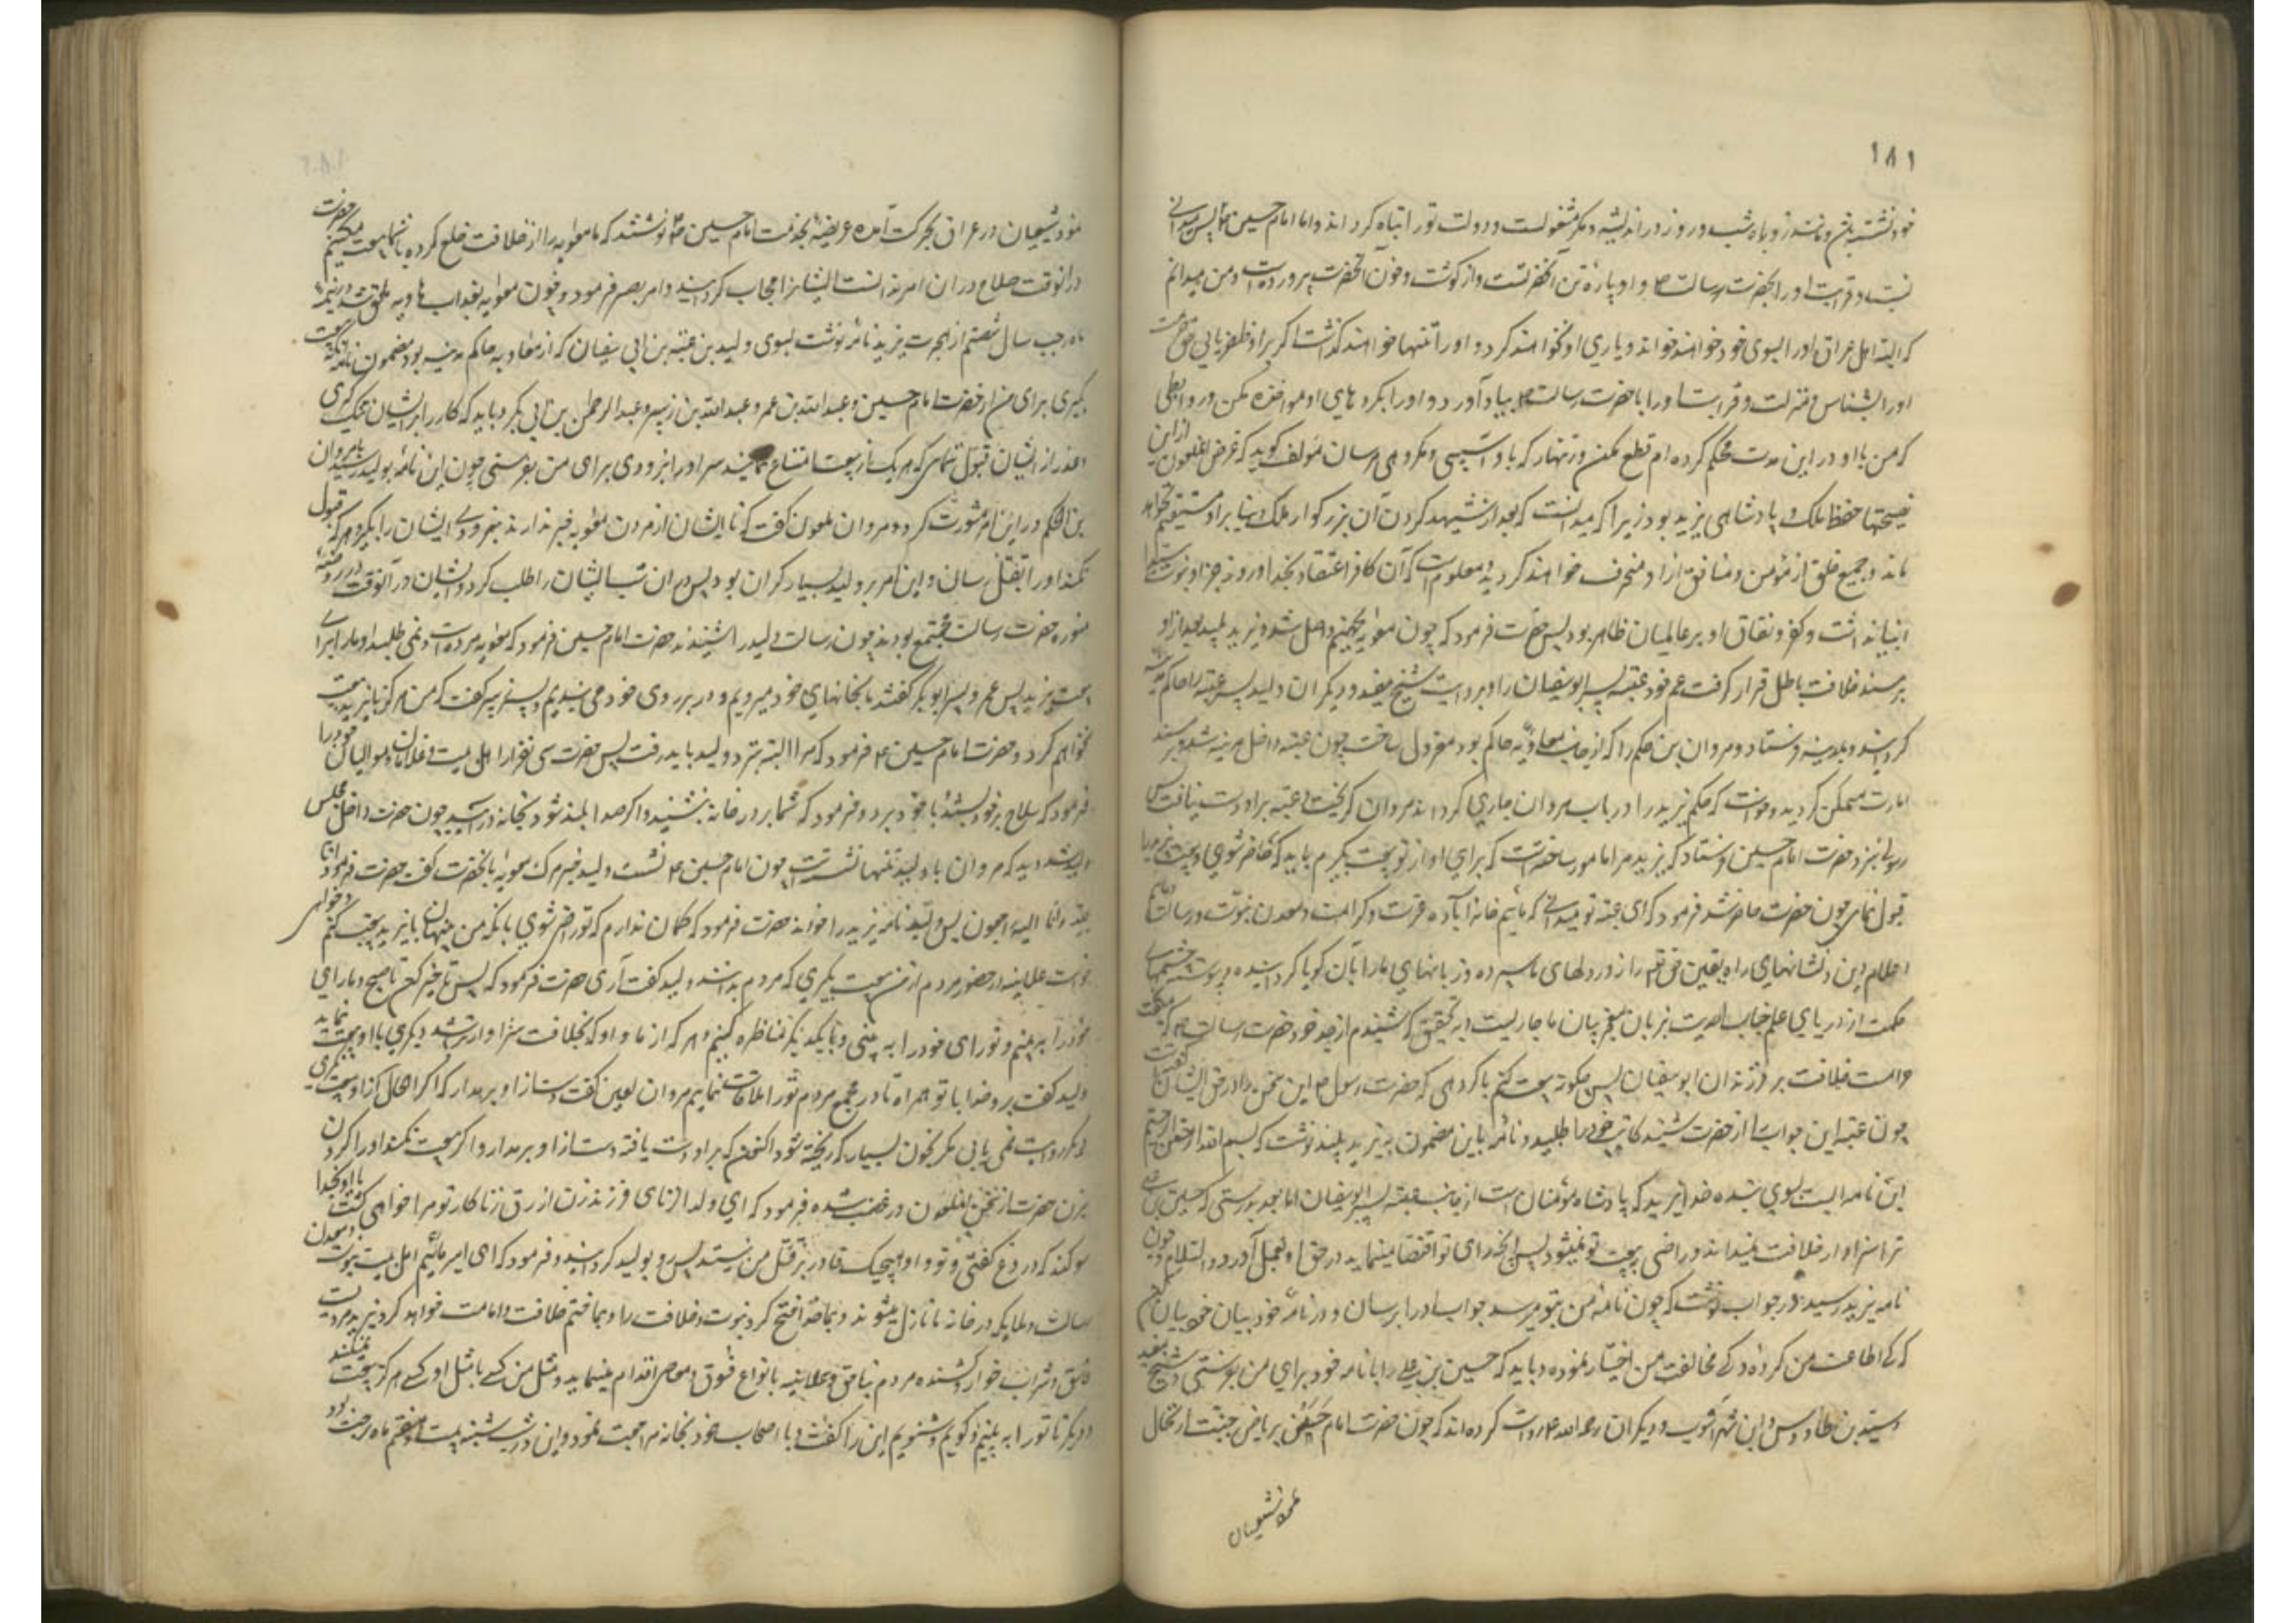 ١٨١
خود نشسته باشد و مانند روباه شب و روز در اندیشه و مکر مشغولست و دولت تو را تباه کرداند و اما امام حسین ع پس میدانی
نسبت و قرابت او را بحضرت رسالت ص و او پاره تن آنحضرتست و از گوشت و خون آنحضرت پرورده است و من میدانم
که البته اهل عراق او را بسوی خود خواهند خواند و یاری او نخواهند کرد و او را تنها خواهند گذاشت اگر بر او ظفر یابی حق حرمت
او را بشناس و منزلت و قرابت او را با حضرت رسالت ص بیاد آور و او را بکرده های او مواخذه مکن و روابطی
که من با او در این مدت محکم کرده ام قطع مکن و زنهار که باو آسیبی و مکروهی مرسان مؤلف گوید که غرض آنملعون از این
نصیحتها حفظ ملک و پادشاهی یزید بود زیرا که میدانست که بعد از شهید کردن آن بزرگوار ملک دنیا بر او مستقیم نخواهد
ماند و جمیع خلق از مؤمن و منافق از او منحرف خواهند گردید و معلومست که آن کافر اعتقاد بخدا و روز جزا و نبوت
انبیا نداشت و کفر و نفاق او بر عالمیان ظاهر بود پس حضرت فرمود که چون معویه بجهنم واصل شد و یزید پلید بعد از او
بر مسند خلافت باطل قرار گرفت عم خود عتبه پسر ابوسفیان را و بروایت شیخ مفید و دیگران ولید پسر عتبه را حاکم مدینه
گردانید و بمدینه فرستاد و مروان بن حکم را که از جانب معاویه حاکم بود معزول ساخت چون عتبه داخل مدینه شد و بر مسند
امارت متمکن گردید و خواست که حکم یزید را در باب مروان جاری گرداند مروان گریخت و عتبه بر او دست نیافت پس
رسولی بنزد حضرت امام حسین فرستاد که یزید مرا مامور ساخته است که برای او از تو بیعت بگیرم باید که حاضر شوی و بیعت یزید را
قبول نمائی چون حضرت حاضر شد فرمود که ای عتبه تو میدانی که مائیم خانه آباده عزت و کرامت و معدن نبوت و رسالت و مائیم
اعلام دین و نشانهای راه یقین حق تعالی راز در دلهای ما سپرده و زبانهای ما را بآن گویا گردانیده و پیوسته چشمهای
حکمت از دریای علم جناب احدیت بزبان معجز بیان ما جاریست و بتحقیق که شنیدم از جد خود حضرت رسالت ص که میگفت
حرامست خلافت بر فرزندان ابوسفیان پس چگونه بیعت کنم با گروهی که حضرت رسول ص این سخن را در حق ایشان گفته است
چون عتبه این جواب را از حضرت شنید کاتب خود را طلبید و نامه باین مضمون به یزید پلید نوشت که بسم الله الرحمن الرحیم
این نامه ایست بسوی بنده خدا یزید که پادشاه مؤمنان است از جانب عتبه پسر ابوسفیان اما بعد بدرستی که حسین بن علی
ترا سزاوار خلافت نمیداند و راضی به بیعت تو نمیشود پس آنچه رای تو اقتضا مینماید در حق او بعمل آور و السلام و چون
نامه بیزید رسید در جواب نوشت که چون نامه من بتو میرسد جواب او را برسان و در نامه خود بیان
که کی اطاعت من کرده و کی مخالفت من اختیار نموده و باید که حسین بن علی را با نامه خود برای من بفرستی و شیخ مفید
و سید بن طاوس و ابن شهرآشوب و دیگران رحمهم الله روایت کرده اند که چون حضرت امام حسن بریاض جنت ارتحال
نمود شیعیان
نمود شیعیان در عراق بحرکت آمده عریضه بخدمت امام حسین ع نوشتند که ما معویه را از خلافت خلع کرده با شما بیعت میکنیم حضرت
در آنوقت صلاح در ان امر ندانست ایشانرا مجاب گردانیده و امر بصبر فرمود و چون معویه بعذاب هاویه ملحق شد در نیمه
ماه رجب سال شصتم از هجرت یزید نامه نوشت بسوی ولید بن عتبه بن ابی سفیان که از معاویه حاکم مدینه بود مضمون نامه آنکه بیعت
بگیری برای من از حضرت امام حسین و عبدالله بن عمر و عبدالله بن زبیر و عبدالرحمن بن ابی بکر و باید که کار را بر ایشان تنگ گیری
و عذر از ایشان قبول ننمائی و هر یک از بیعت امتناع نمایند سر او را بزودی برای من بفرستی چون این نامه بولید رسید با مروان
بن الحکم در این امر مشورت کرد و مروان ملعون گفت که تا ایشان از مردن معویه خبر ندارند بزودی ایشان را بگیر و هر که قبول
نکند او را بقتل رسان و این امر بر ولید بسیار گران بود پس در ان شب ایشان را طلب کرد و ایشان در آنوقت در روضه
منوره حضرت رسالت مجتمع بودند چون رسالت ولید را شنیدند حضرت امام حسین فرمود که معویه مرده است و نمی طلبد او ما را مگر برای
بیعت یزید پس عمر و پسر ابوبکر گفتند ما بخانهای خود میرویم و در بر روی خود می بندیم و پسر زبیر گفت که من هرگز با یزید بیعت
نخواهم کرد و حضرت امام حسین ع فرمود که مرا البته بنزد ولید باید رفت پس حضرت سی نفر از اهل بیت و غلامان و موالیان خود را
فرمود که سلاح بر خود بستند و با خود برد و فرمود که شما بر در خانه بنشینید و اگر صدا بلند شود بخانه در آئید چون حضرت داخل مجلس
ولید شد دید که مروان با ولید تنها نشسته است چون امام حسین ع نشست ولید خبر مرگ معویه بآنحضرت گفت حضرت فرمود انا
لله و انا الیه راجعون پس ولید نامه یزید را خواند حضرت فرمود که گمان ندارم که تو راضی شوی بآنکه من پنهان با یزید بیعت کنم و خواهی
خواست علانیه در حضور مردم از من بیعت بگیری که مردم بدانند ولید گفت آری حضرت فرمود که پس تاخیر کن تا صبح و ما رای
خود را به بینیم و تو رای خود را به بینی و با یکدیگر مناظره کنیم و هر که از ما و او که بخلافت سزاوارتر باشد دیگری با او بیعت نماید
ولید گفت برو خدا با تو همراه تا در مجمع مردم تو را ملاقات نمایم مروان لعین گفت دست از او برمدار که اگر الحال از او بیعت نگیری
دیگر بر او دست نمی یابی مگر بخون بسیار که ریخته شود اکنون که بر او دست یافته دست از او برمدار و اگر بیعت نکند او را گردن
بزن حضرت از سخن آنملعون در غضب شده فرمود که ای ولد الزنای فرزند زن ازرق زناکار تو مرا خواهی کشت یا او بخدا
سوگند که دروغ گفتی و تو و او هیچیک قادر بر قتل من نیستید پس رو بولید گردانید و فرمود که ای امیر مائیم اهل بیت نبوت و معدن
رسالت و ملایکه در خانه ما نازل میشوند و بما خدا فتح کرد نبوت و خلافت را و بما ختم خلافت و امامت خواهد کرد و یزید مردیست
فاسق و شراب خوار و کشنده مردم بناحق و علانیه بانواع فسوق و معاصی اقدام مینماید و مثل من کسی با مثل او کسی هرگز بیعت نمیکند
و دیگر تا تو را به بینیم و گوئیم و شنویم این را گفت و با اصحاب خود بخانه مراجعت نمود و این در شب شنبه بیست و هفتم ماه رجب بود